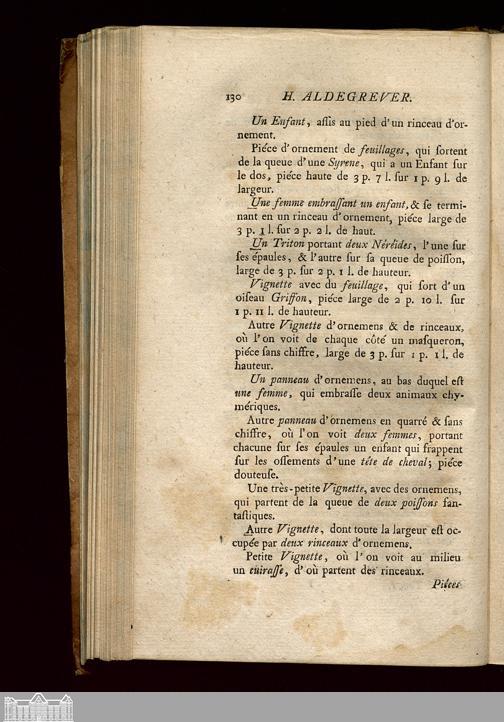 130 H. ALDEGREVER.
Un Enfant, aſſis au pied d'un rinceau d'or-
nement.
Piéce d'ornement de feuillages, qui ſortent
de la queue d'une Syrene, qui a un Enfant ſur
le dos, piéce haute de 3 p. 7 l. ſur 1 p. 9 l. de
largeur.
Une femme embraſſant un enfant, & ſe termi-
nant en un rinceau d'ornement, piéce large de
3 p. 1 l. ſur 2 p. 2 l. de haut.
Un Triton portant deux Néréides, l'une ſur
ſes épaules, & l'autre ſur ſa queue de poiſſon,
large de 3 p. ſur 2 p. 1 l. de hauteur.
Vignette avec du feuillage, qui ſort d'un
oiſeau Griffon, piéce large de 2 p. 10 l. ſur
1 p. 11 l. de hauteur.
Autre Vignette d'ornemens & de rinceaux,
où l'on voit de chaque côté un maſqueron,
piéce ſans chiffre, large de 3 p. ſur 1 p. 1 l. de
hauteur.
Un panneau d'ornemens, au bas duquel eſt
une femme, qui embraſſe deux animaux chy-
mériques.
Autre panneau d'ornemens en quarré & ſans
chiffre, où l'on voit deux femmes, portant
chacune ſur ſes épaules un enfant qui frappent
ſur les oſſemens d'une tête de cheval; piéce
douteuſe.
Une très-petite Vignette, avec des ornemens,
qui partent de la queue de deux poiſſons fan-
taſtiques.
Autre Vignette, dont toute la largeur eſt oc-
cupée par deux rinceaux d'ornemens.
Petite Vignette, où l'on voit au milieu
un cuiraſſe, d'où partent des rinceaux.
Piéces